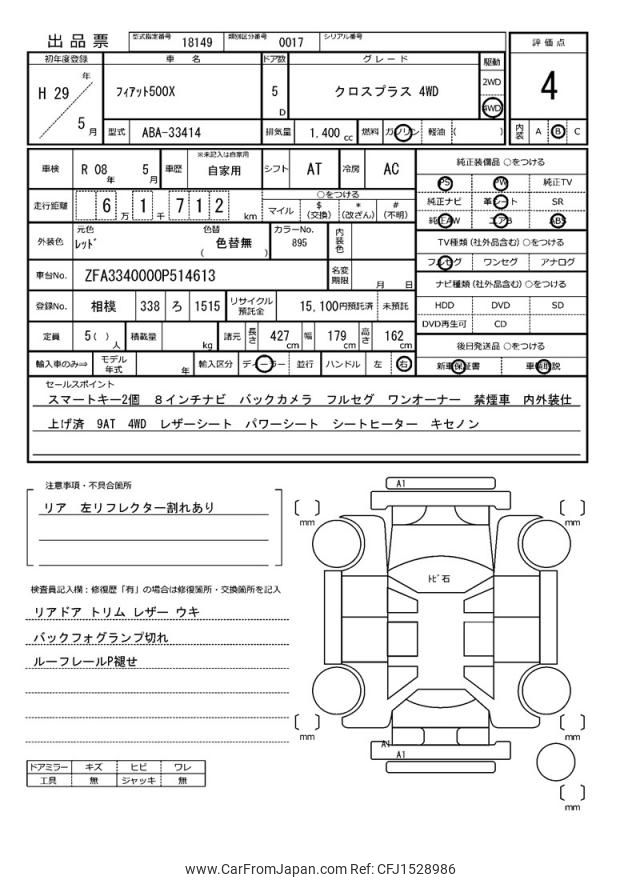 出品票 型式指定番号 18149 類別区分番号 0017 シリアル番号
評価点
4
内装 A B C
初年度登録 車名 ドア数 グレード 駆動
H 29 年 5 月 フィアット500X 5 D クロスプラス 4WD 2WD 4WD
型式 ABA-33414 排気量 1,400 cc 燃料 ガソリン 軽油 ( )
車検 R 08 年 5 月 車歴 ※未記入は自家用 自家用 シフト AT 冷房 AC
走行距離 6 万 1 千 7 1 2 km ○をつける マイル $ (交換) * (改ざん) # (不明)
外装色 元色 レッド 色替 ( 色替無 ) カラーNo. 895 内装色
車台No. ZFA3340000P514613 名変期限 月 日
登録No. 相模 338 ろ 1515 リサイクル預託金 15,100円預託済 未預託
定員 5( ) 人 積載量 kg 諸元 長さ 427 cm 幅 179 cm 高さ 162 cm
輸入車のみ⇨ モデル年式 年 輸入区分 ディーラー 並行 ハンドル 左 右
純正装備品 ○をつける
PS PW 純正TV
純正ナビ 革シート SR
純正AW エアB ABS
TV種類 (社外品含む) ○をつける
フルセグ ワンセグ アナログ
ナビ種類 (社外品含む) ○をつける
HDD DVD SD
DVD再生可 CD
後日発送品 ○をつける
新車保証書 車輌取説
セールスポイント
スマートキー2個 8インチナビ バックカメラ フルセグ ワンオーナー 禁煙車 内外装仕
上げ済 9AT 4WD レザーシート パワーシート シートヒーター キセノン
注意事項・不具合箇所
リア 左リフレクター割れあり
検査員記入欄：修復歴「有」の場合は修復箇所・交換箇所を記入
リアドア トリム レザー ウキ
バックフォグランプ切れ
ルーフレールP褪せ
ドアミラー キズ ヒビ ワレ
工具 無 ジャッキ 無
A1
mm mm
トビ石
mm mm
A1
A1
mm
www.CarFromJapan.com Ref: CFJ1528986